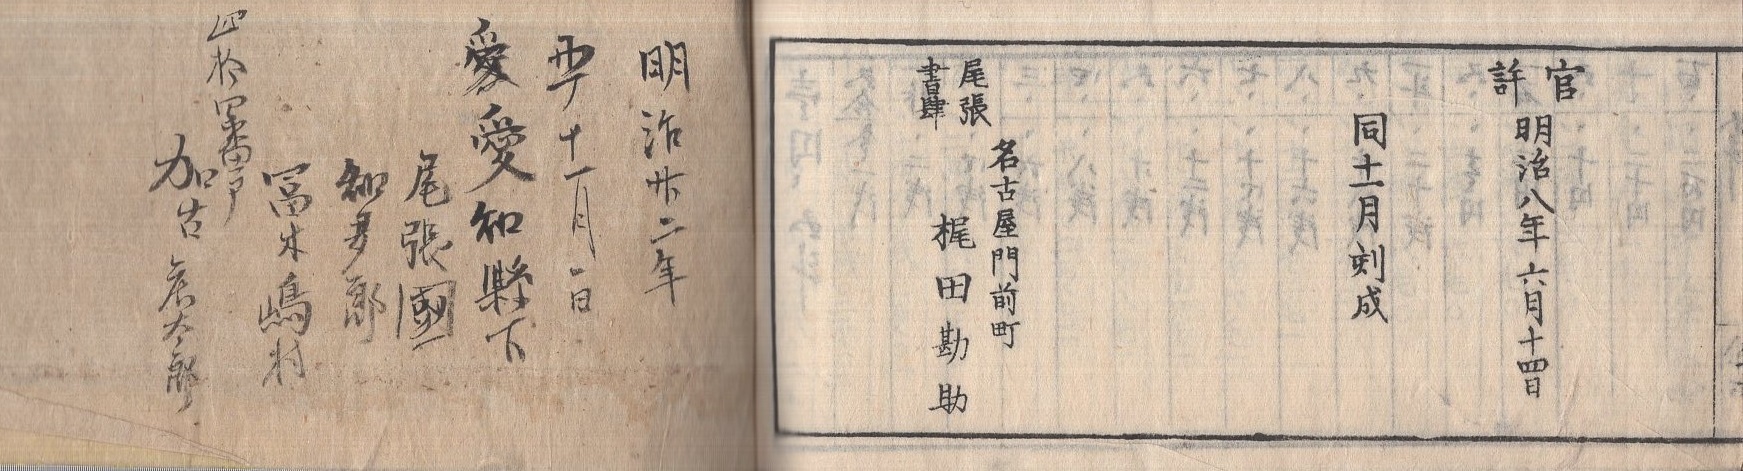 官許
明治八年六月十四日
同十一月刻成
尾張書肆
名古屋門前町
梶田勘助
明治廿二年
十一月一日
愛愛知縣下
尾張國
知多郡
冨木嶋村
四拾四番戸
加古 太郎